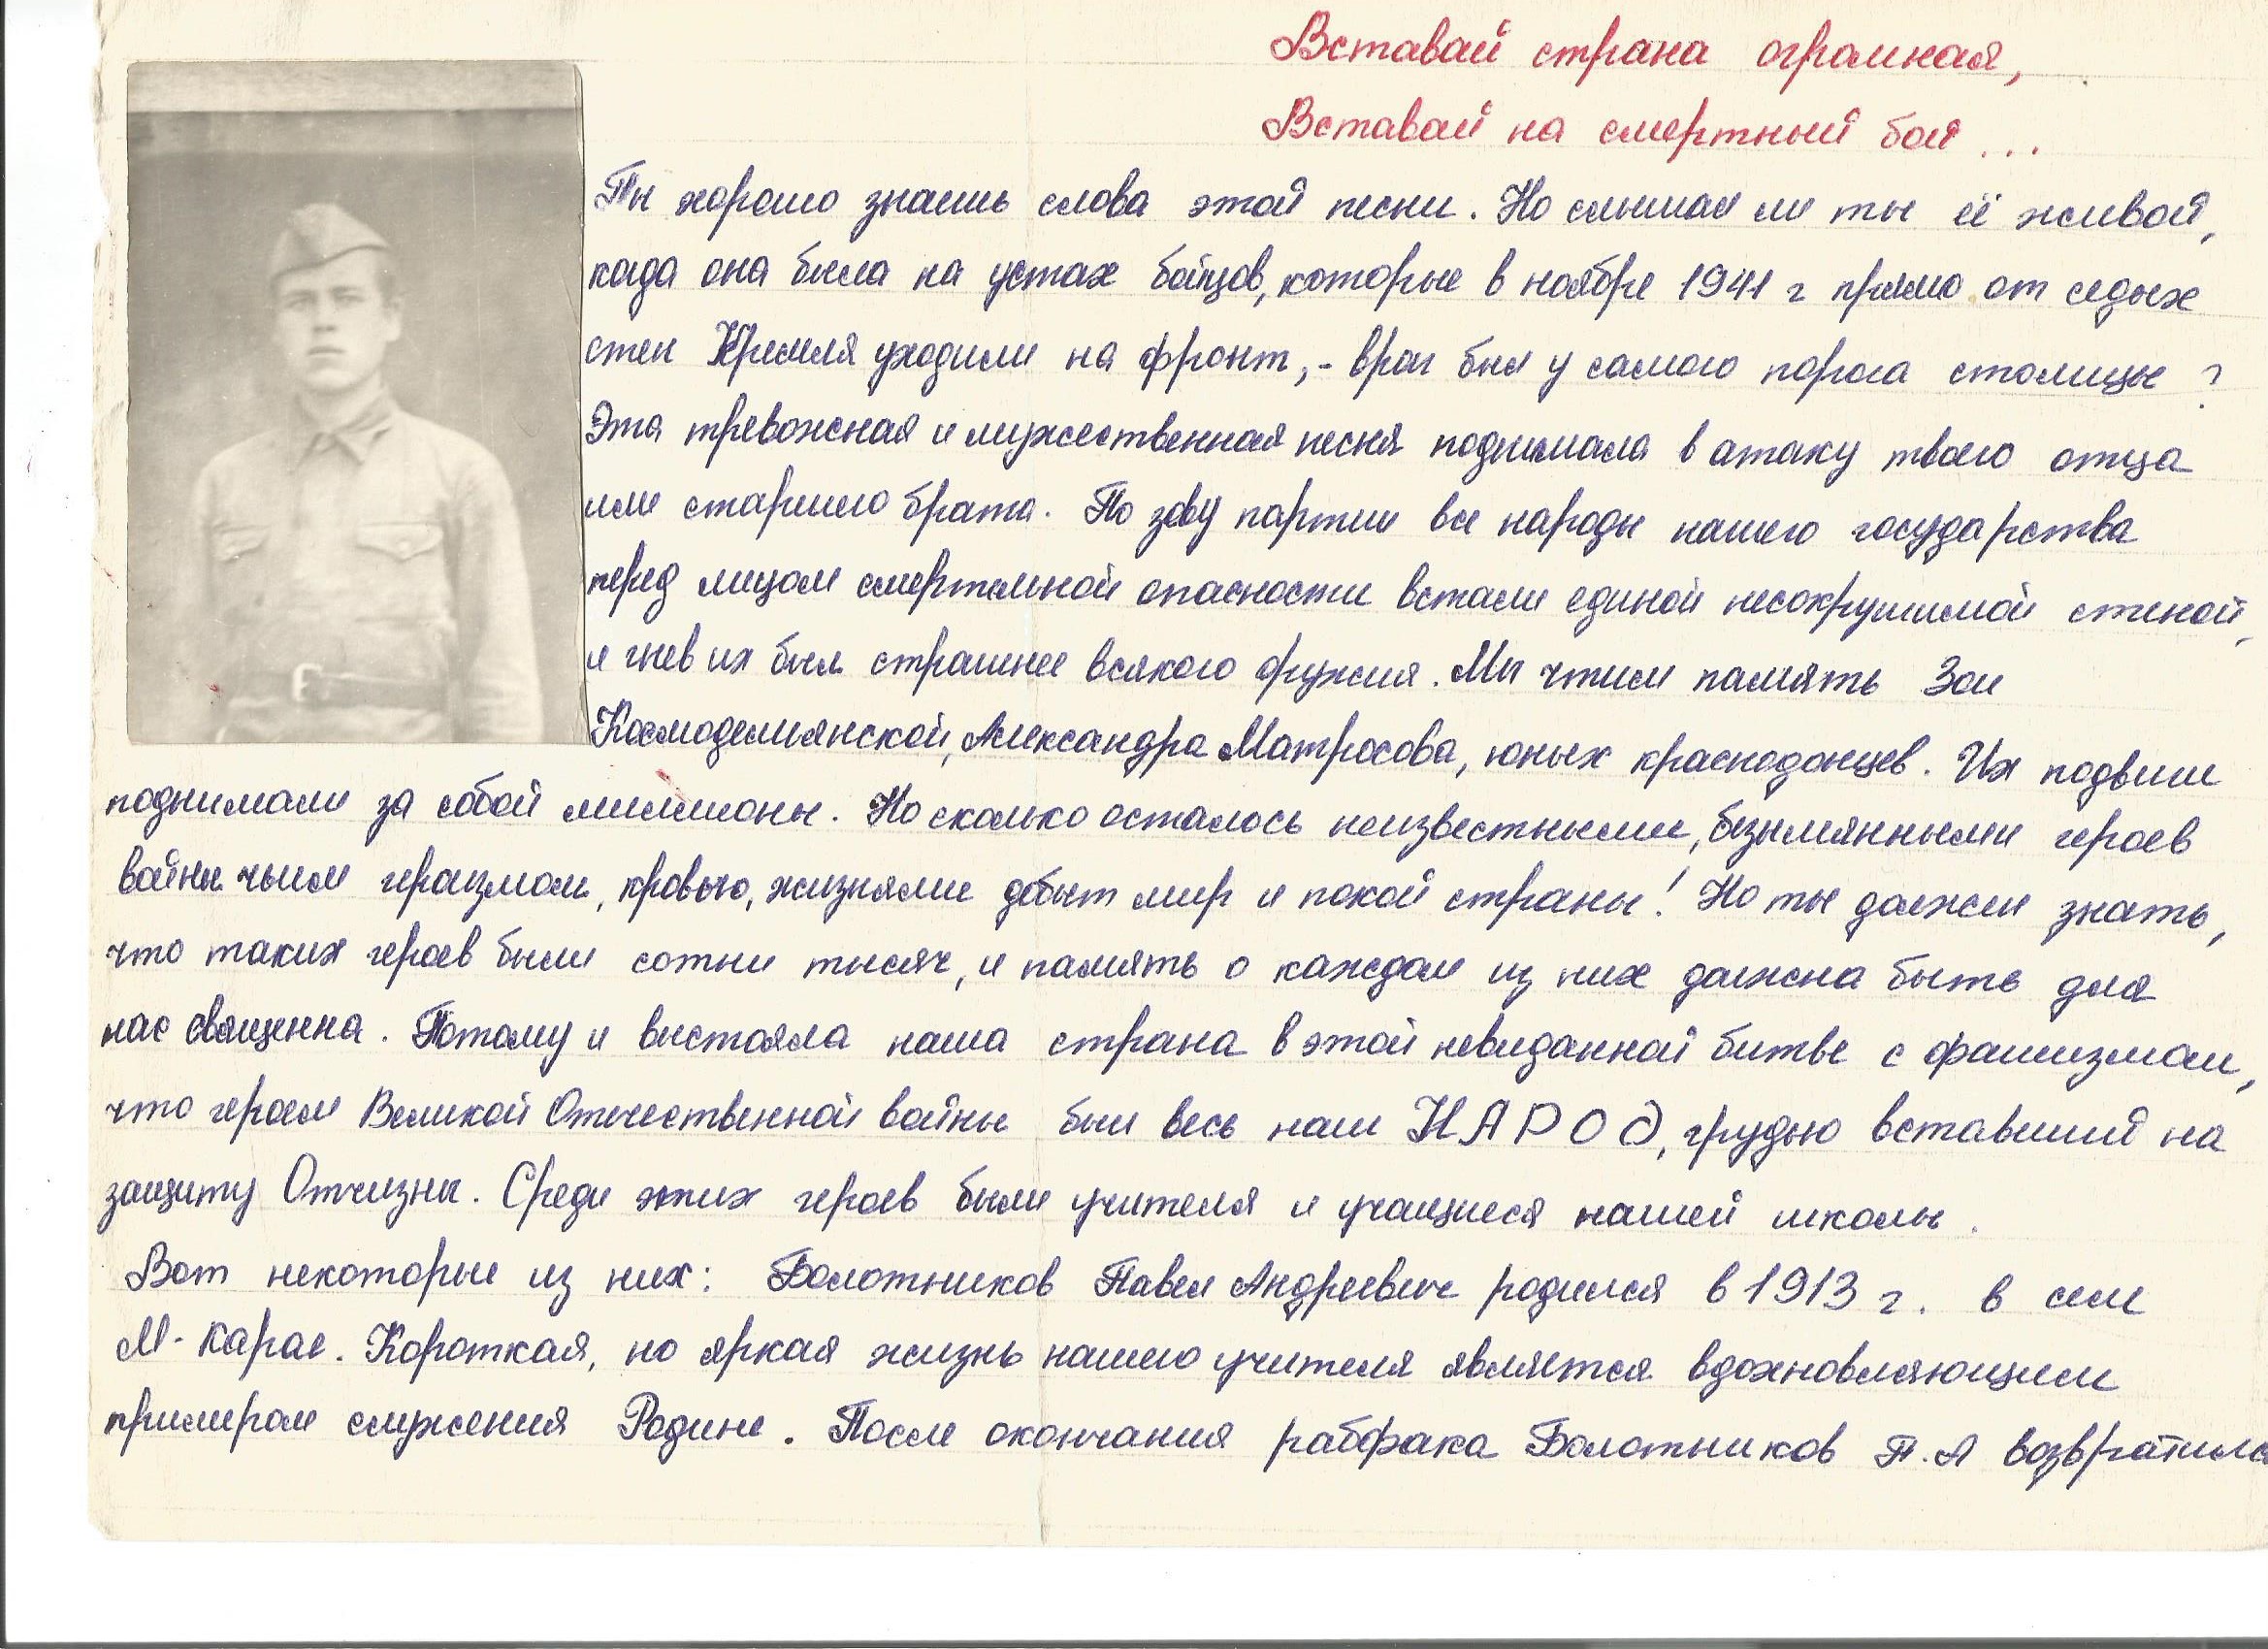 Вставай страна огромная,
Вставай на смертный бой ...
Ты хорошо знаешь слова этой песни. Но слышал ли ты её живой,
когда она была на устах бойцов, которые в ноябре 1941 г прямо от седых
стен Кремля уходили на фронт, - враг был у самого порога столицы ?
Эта тревожная и мужественная песня поднимала в атаку твоего отца
или старшего брата. По зову партии все народы нашего государства
перед лицом смертельной опасности встали единой несокрушимой стеной,
и гнев их был страшнее всякого оружия. Мы чтим память Зои
Космодемьянской, Александра Матросова, юных краснодонцев. Их подвиги
поднимали за собой миллионы. Но сколько осталось неизвестными, безымянными героев
войны чьим героизмом, кровью, жизнями добыт мир и покой страны! Но ты должен знать,
что таких героев были сотни тысяч, и память о каждом из них должна быть для
нас священна. Потому и выстояла наша страна в этой невиданной битве с фашизмом,
что героем Великой Отечественной войны был весь наш НАРОД, грудью вставший на
защиту Отчизны. Среди этих героев были учителя и учащиеся нашей школы.
Вот некоторые из них: Болотников Павел Андреевич родился в 1913 г. в селе
М-Карае. Короткая, но яркая жизнь нашего учителя является вдохновляющим
примером служения Родине. После окончания рабфака Болотников П.А возвратился